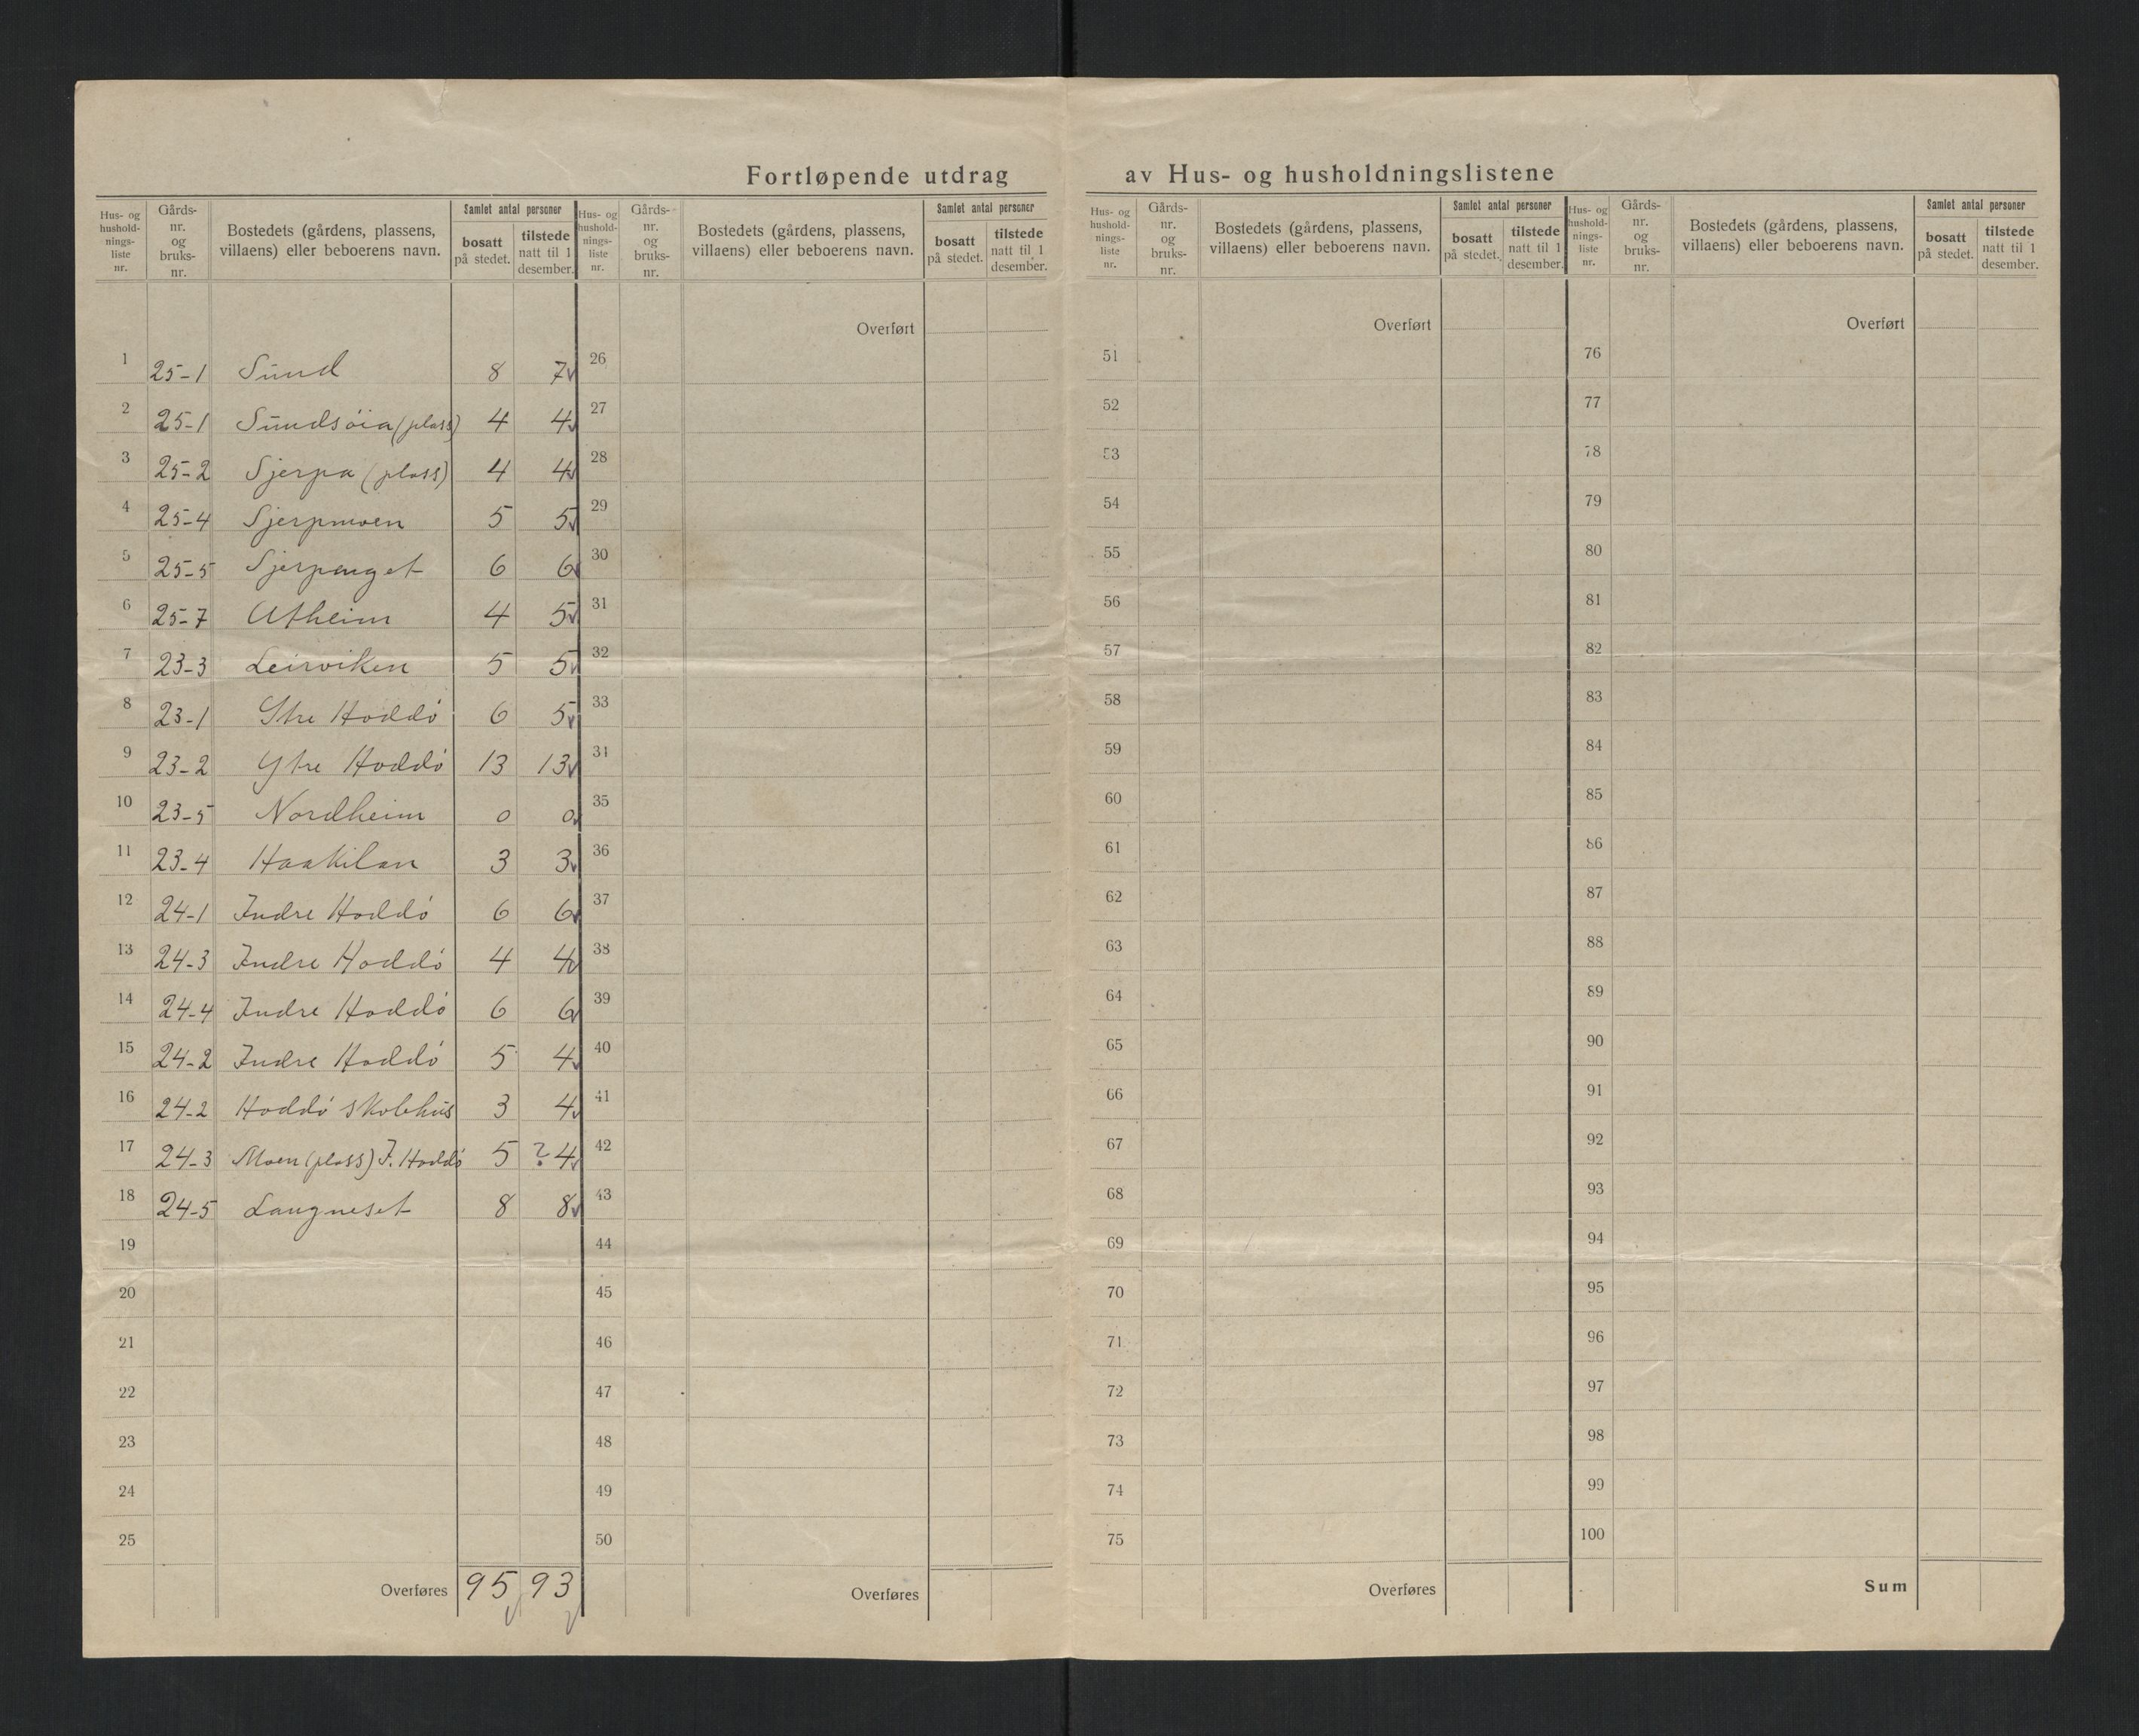 Fortløpende utdrag av Hus- og husholdningslistene
Hus- og hushold-nings-liste nr. Gårds-nr. og bruks-nr. Bostedets (gårdens, plassens, villaens) eller beboerens navn. Samlet antal personer bosatt på stedet. tilstede natt til 1 desember.
1 25-1 Sund 8 7
2 25-1 Sundsöia (plass) 4 4
3 25-2 Sjerpa (plass) 4 4
4 25-4 Sjerpmoen 5 5
5 25-5 Sjerpenget 6 6
6 25-7 Utheim 4 5
7 23-3 Leirviken 5 5
8 23-1 Ytre Hoddö 6 5
9 23-2 Ytre Hoddö 13 13
10 23-5 Nordheim 0 0
11 23-4 Haakilan 3 3
12 24-1 Indre Hoddö 6 6
13 24-3 Indre Hoddö 4 4
14 24-4 Indre Hoddö 6 6
15 24-2 Indre Hoddö 5 4
16 24-2 Hoddö skolehus 3 4
17 24-3 Moen (plass) I. Hoddö 5 ? 4
18 24-5 Langneset 8 8
19
20
21
22
23
24
25
Overføres 95 93
Hus- og hushold-nings-liste nr. Gårds-nr. og bruks-nr. Bostedets (gårdens, plassens, villaens) eller beboerens navn. Samlet antal personer bosatt på stedet. tilstede natt til 1 desember.
Overført
26
27
28
29
30
31
32
33
34
35
36
37
38
39
40
41
42
43
44
45
46
47
48
49
50
Overføres
Hus- og hushold-nings-liste nr. Gårds-nr. og bruks-nr. Bostedets (gårdens, plassens, villaens) eller beboerens navn. Samlet antal personer bosatt på stedet. tilstede natt til 1 desember.
Overført
51
52
53
54
55
56
57
58
59
60
61
62
63
64
65
66
67
68
69
70
71
72
73
74
75
Overføres
Hus- og hushold-nings-liste nr. Gårds-nr. og bruks-nr. Bostedets (gårdens, plassens, villaens) eller beboerens navn. Samlet antal personer bosatt på stedet. tilstede natt til 1 desember.
Overført
76
77
78
79
80
81
82
83
84
85
86
87
88
89
90
91
92
93
94
95
96
97
98
99
100
Sum